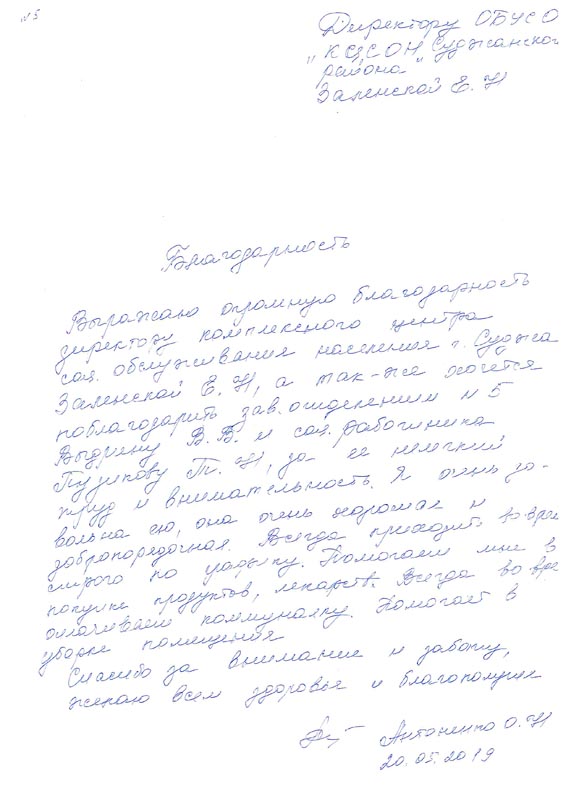 №5
Директору ОБУСО
"КЦСОН Суджанского
района"
Заленской Е. Н
Благодарность
Выражаю огромную благодарность
директору комплексного центра
соц. обслуживания населения г. Суджа
Заленской Е. Н, а так-же хочется
поблагодарить зав. отделением №5
Выдрину В. В. и соц. работника
Пузикову Т. Н, за ее нелегкий
труд и внимательность. Я очень до-
вольна ею, она очень хорошая и
добропорядочная. Всегда приходит во врем
строго по графику. Помогает мне в
покупке продуктов, лекарств. Всегда во вре
оплачивает коммуналку. Помогает в
уборке помещения
Спасибо за внимание и заботу,
желаю всем здоровья и благополучия
Антоненко О. Н
20. 05. 2019